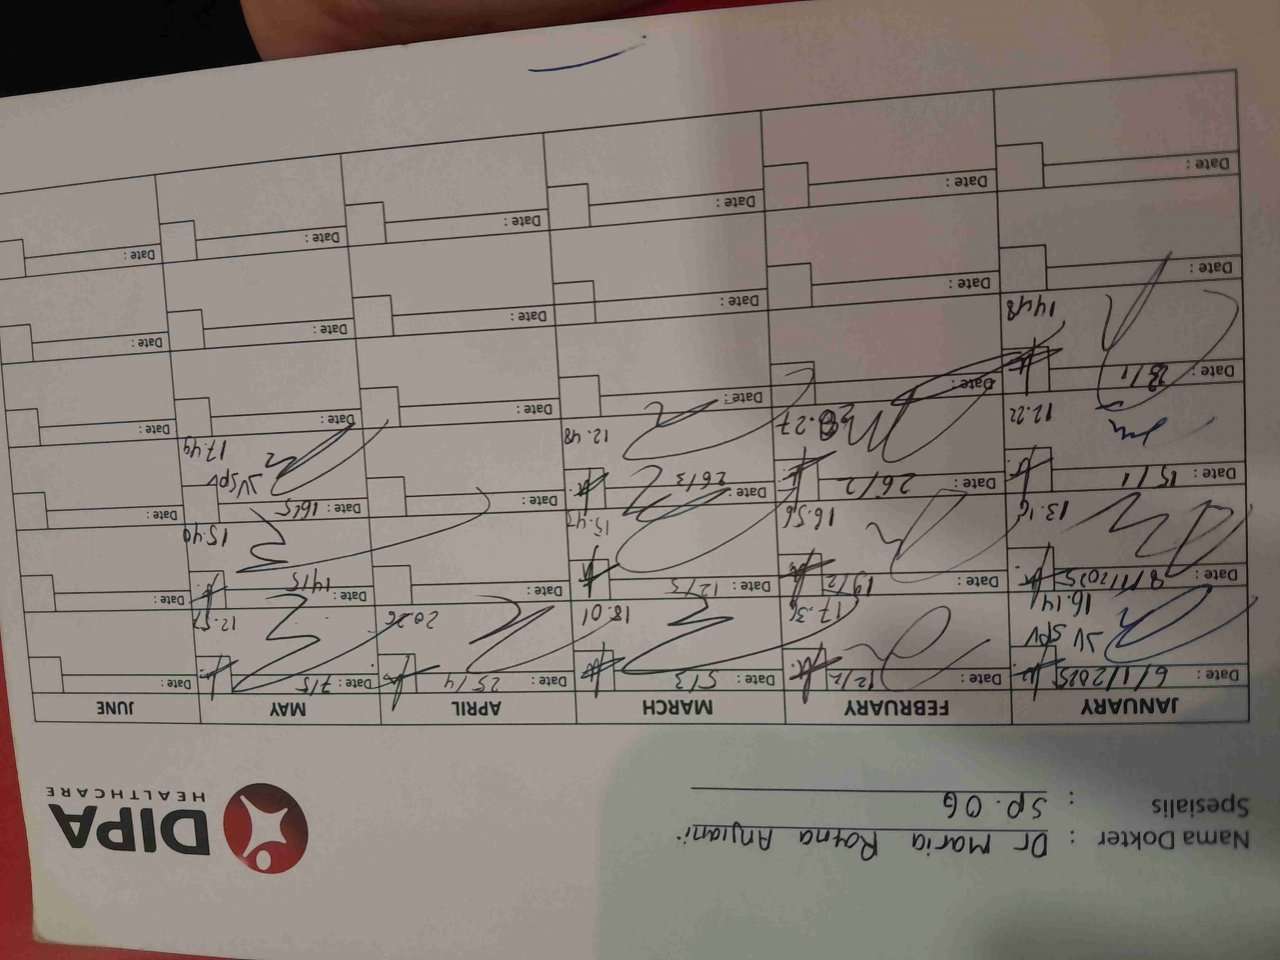 DIPA
HEALTHCARE
Nama Dokter : Dr Maria Ratna Anjani
Spesialis : Sp. OG
JANUARY FEBRUARY MARCH APRIL MAY JUNE
Date : 6/1/2025 Date : 12/2 Date : 5/3 Date : 25/4 Date : 7/5 Date :
JV SPV
16.14 17.31 18.01 20.26 12.57
Date : 8/1/2025 Date : 19/2 Date : 12/3 Date : Date : 14/5 Date :
13.16 16.56 15.47 15.40
Date : 15/1 Date : 26/2 Date : 26/3 Date : Date : 16/5 Date :
JV SPV
12.22 12.48 17.49
Date : 23/1 Date : Date : Date : Date : Date :
14.48
Date : Date : Date : Date : Date : Date :
Date : Date : Date : Date : Date : Date :